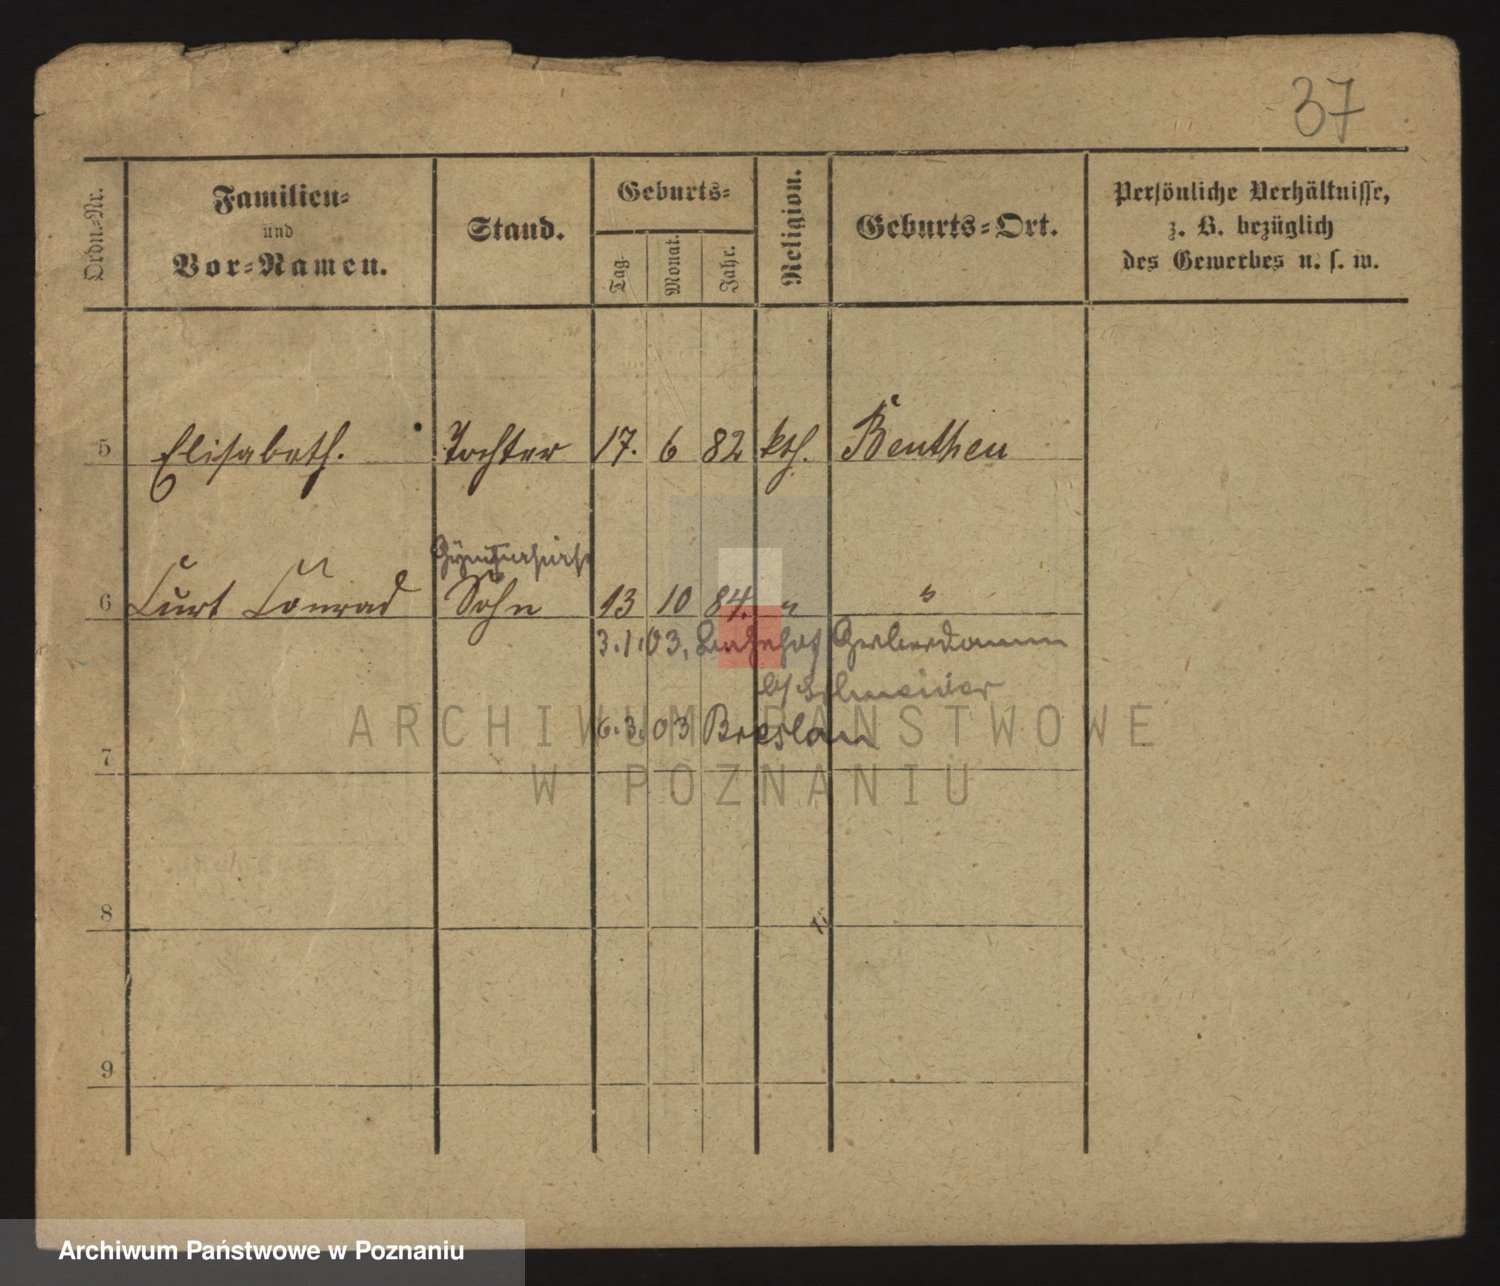 37
Ordn.-Nr.
Familien-
und
Vor-Namen.
Stand.
Geburts-
Tag.
Monat.
Jahr.
Religion.
Geburts-Ort.
Persönliche Verhältnisse,
z. B. bezüglich
des Gewerbes u. s. w.
5 Elisabeth. Tochter 17. 6 82 kth. Beuthen
6 Curt Conrad Sohn 13 10 84. " "
3.1.03. Gerberdamm
b/ Schneider
6.3.03 Breslau
7
8
9
ARCHIWUM PAŃSTWOWE
W POZNANIU
Archiwum Państwowe w Poznaniu